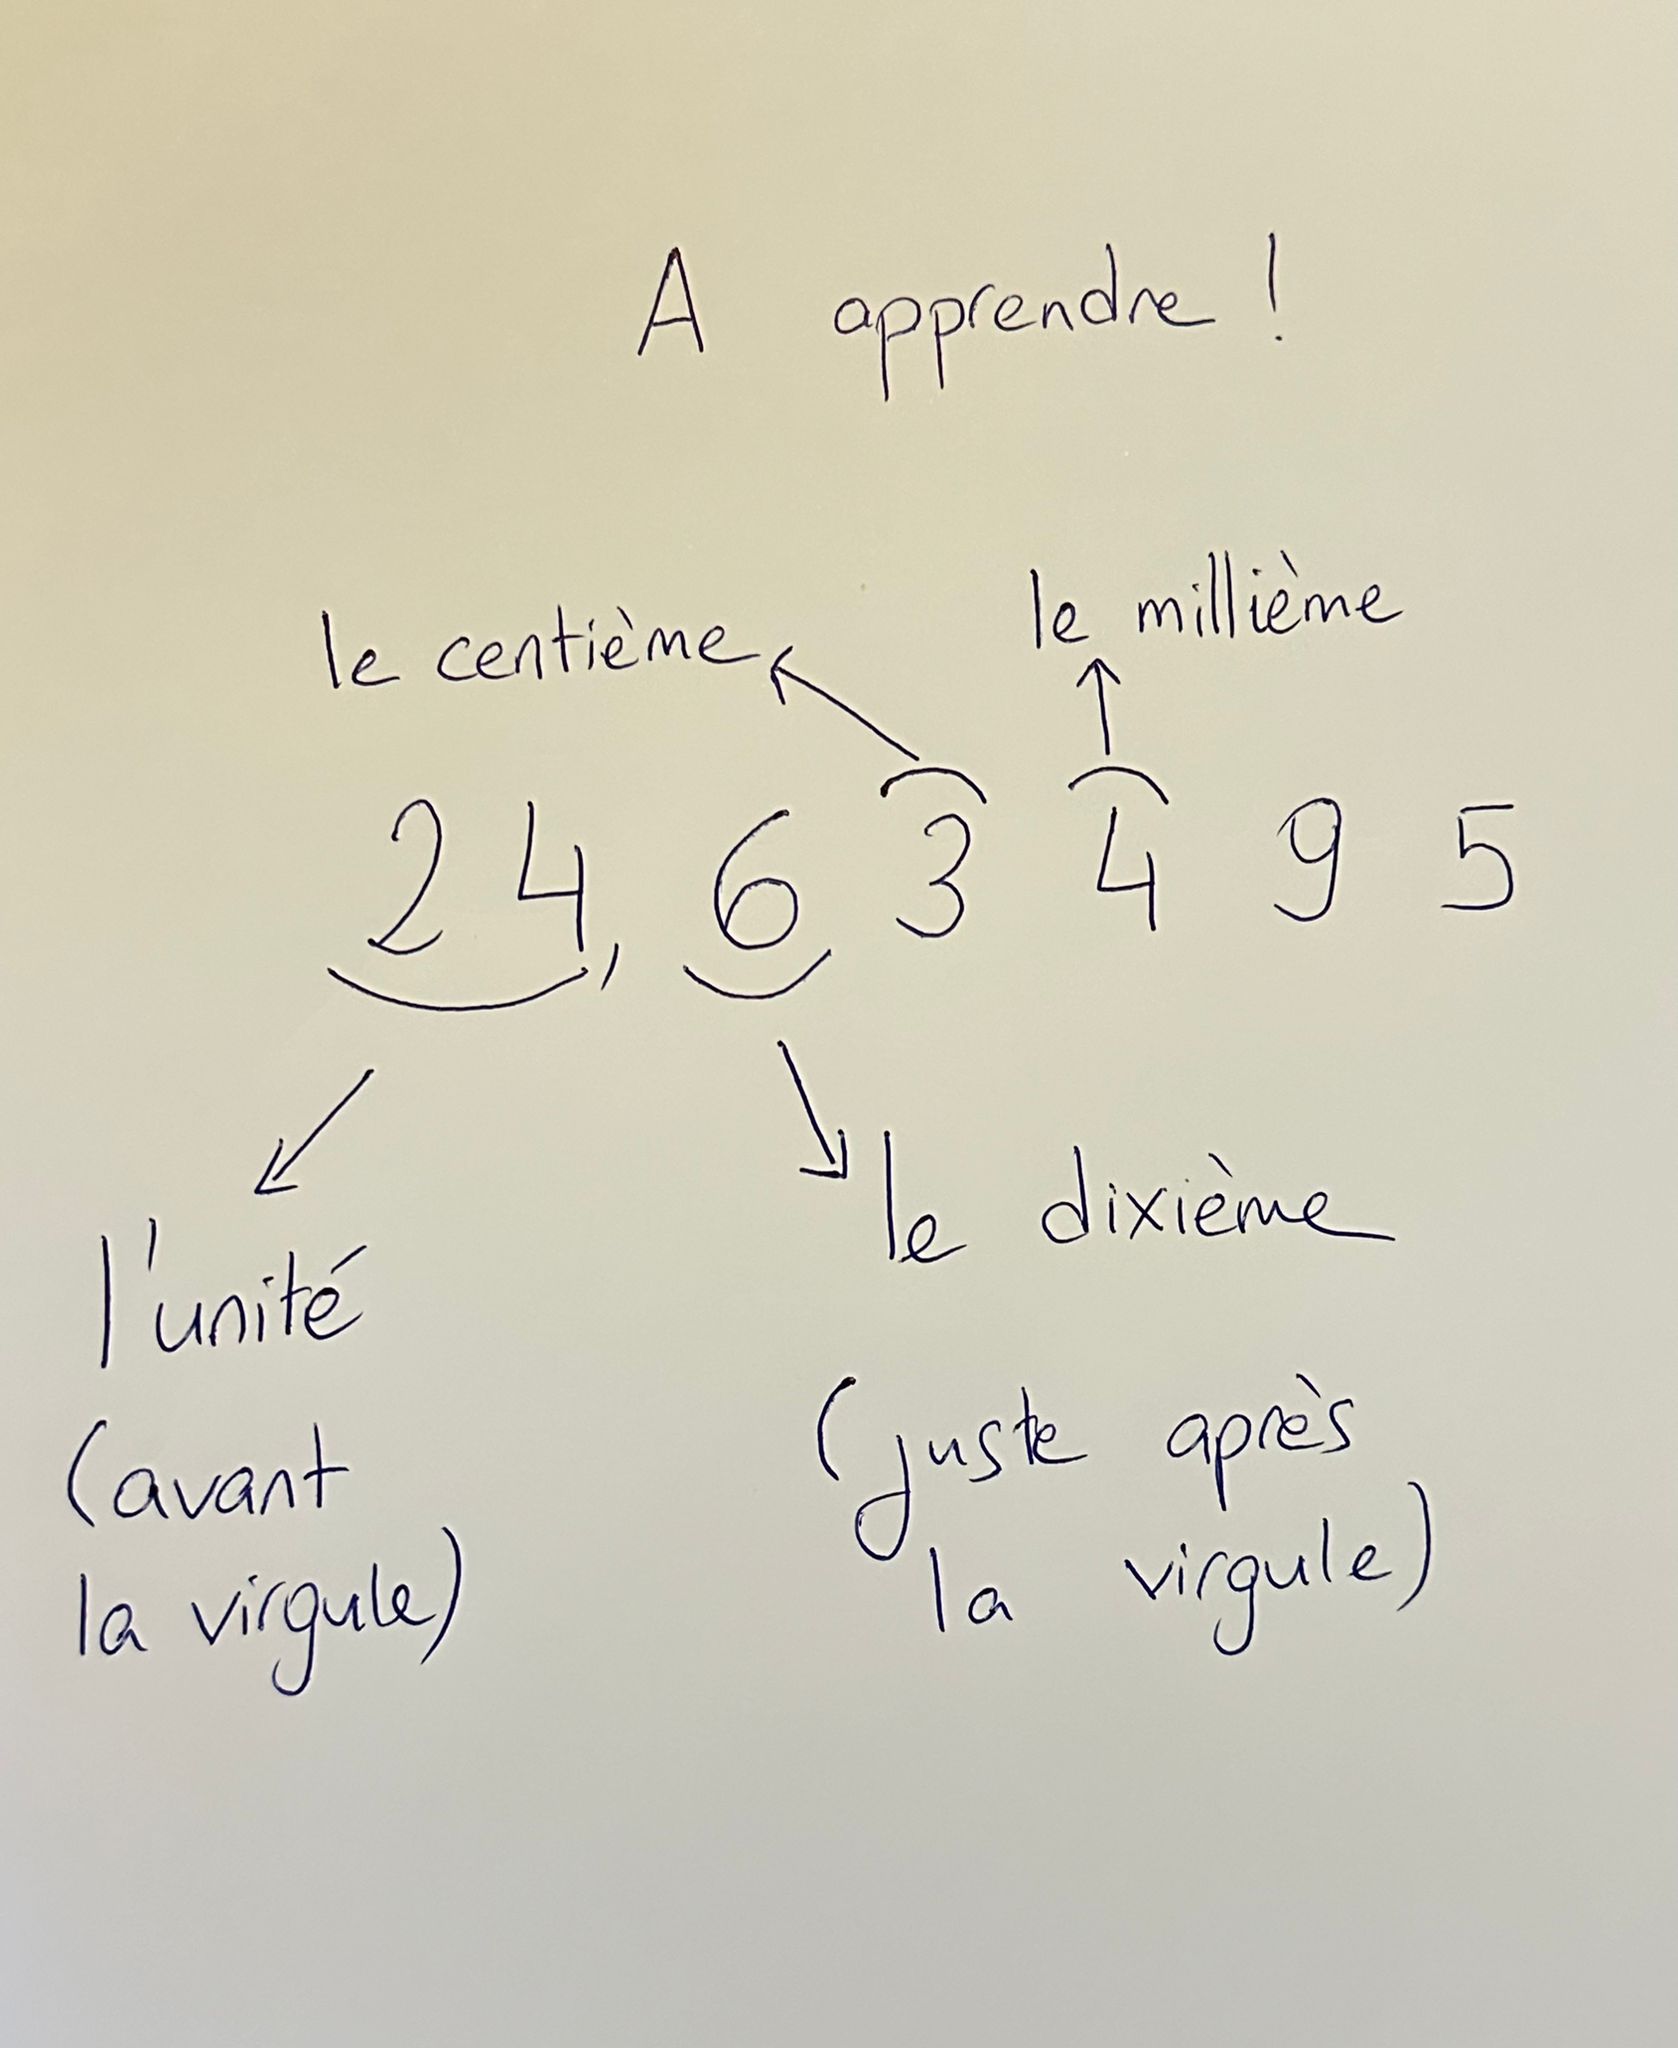 A apprendre !
le centième le millième
24,63495
l'unité le dixième
(avant
la virgule)
(juste après
la virgule)